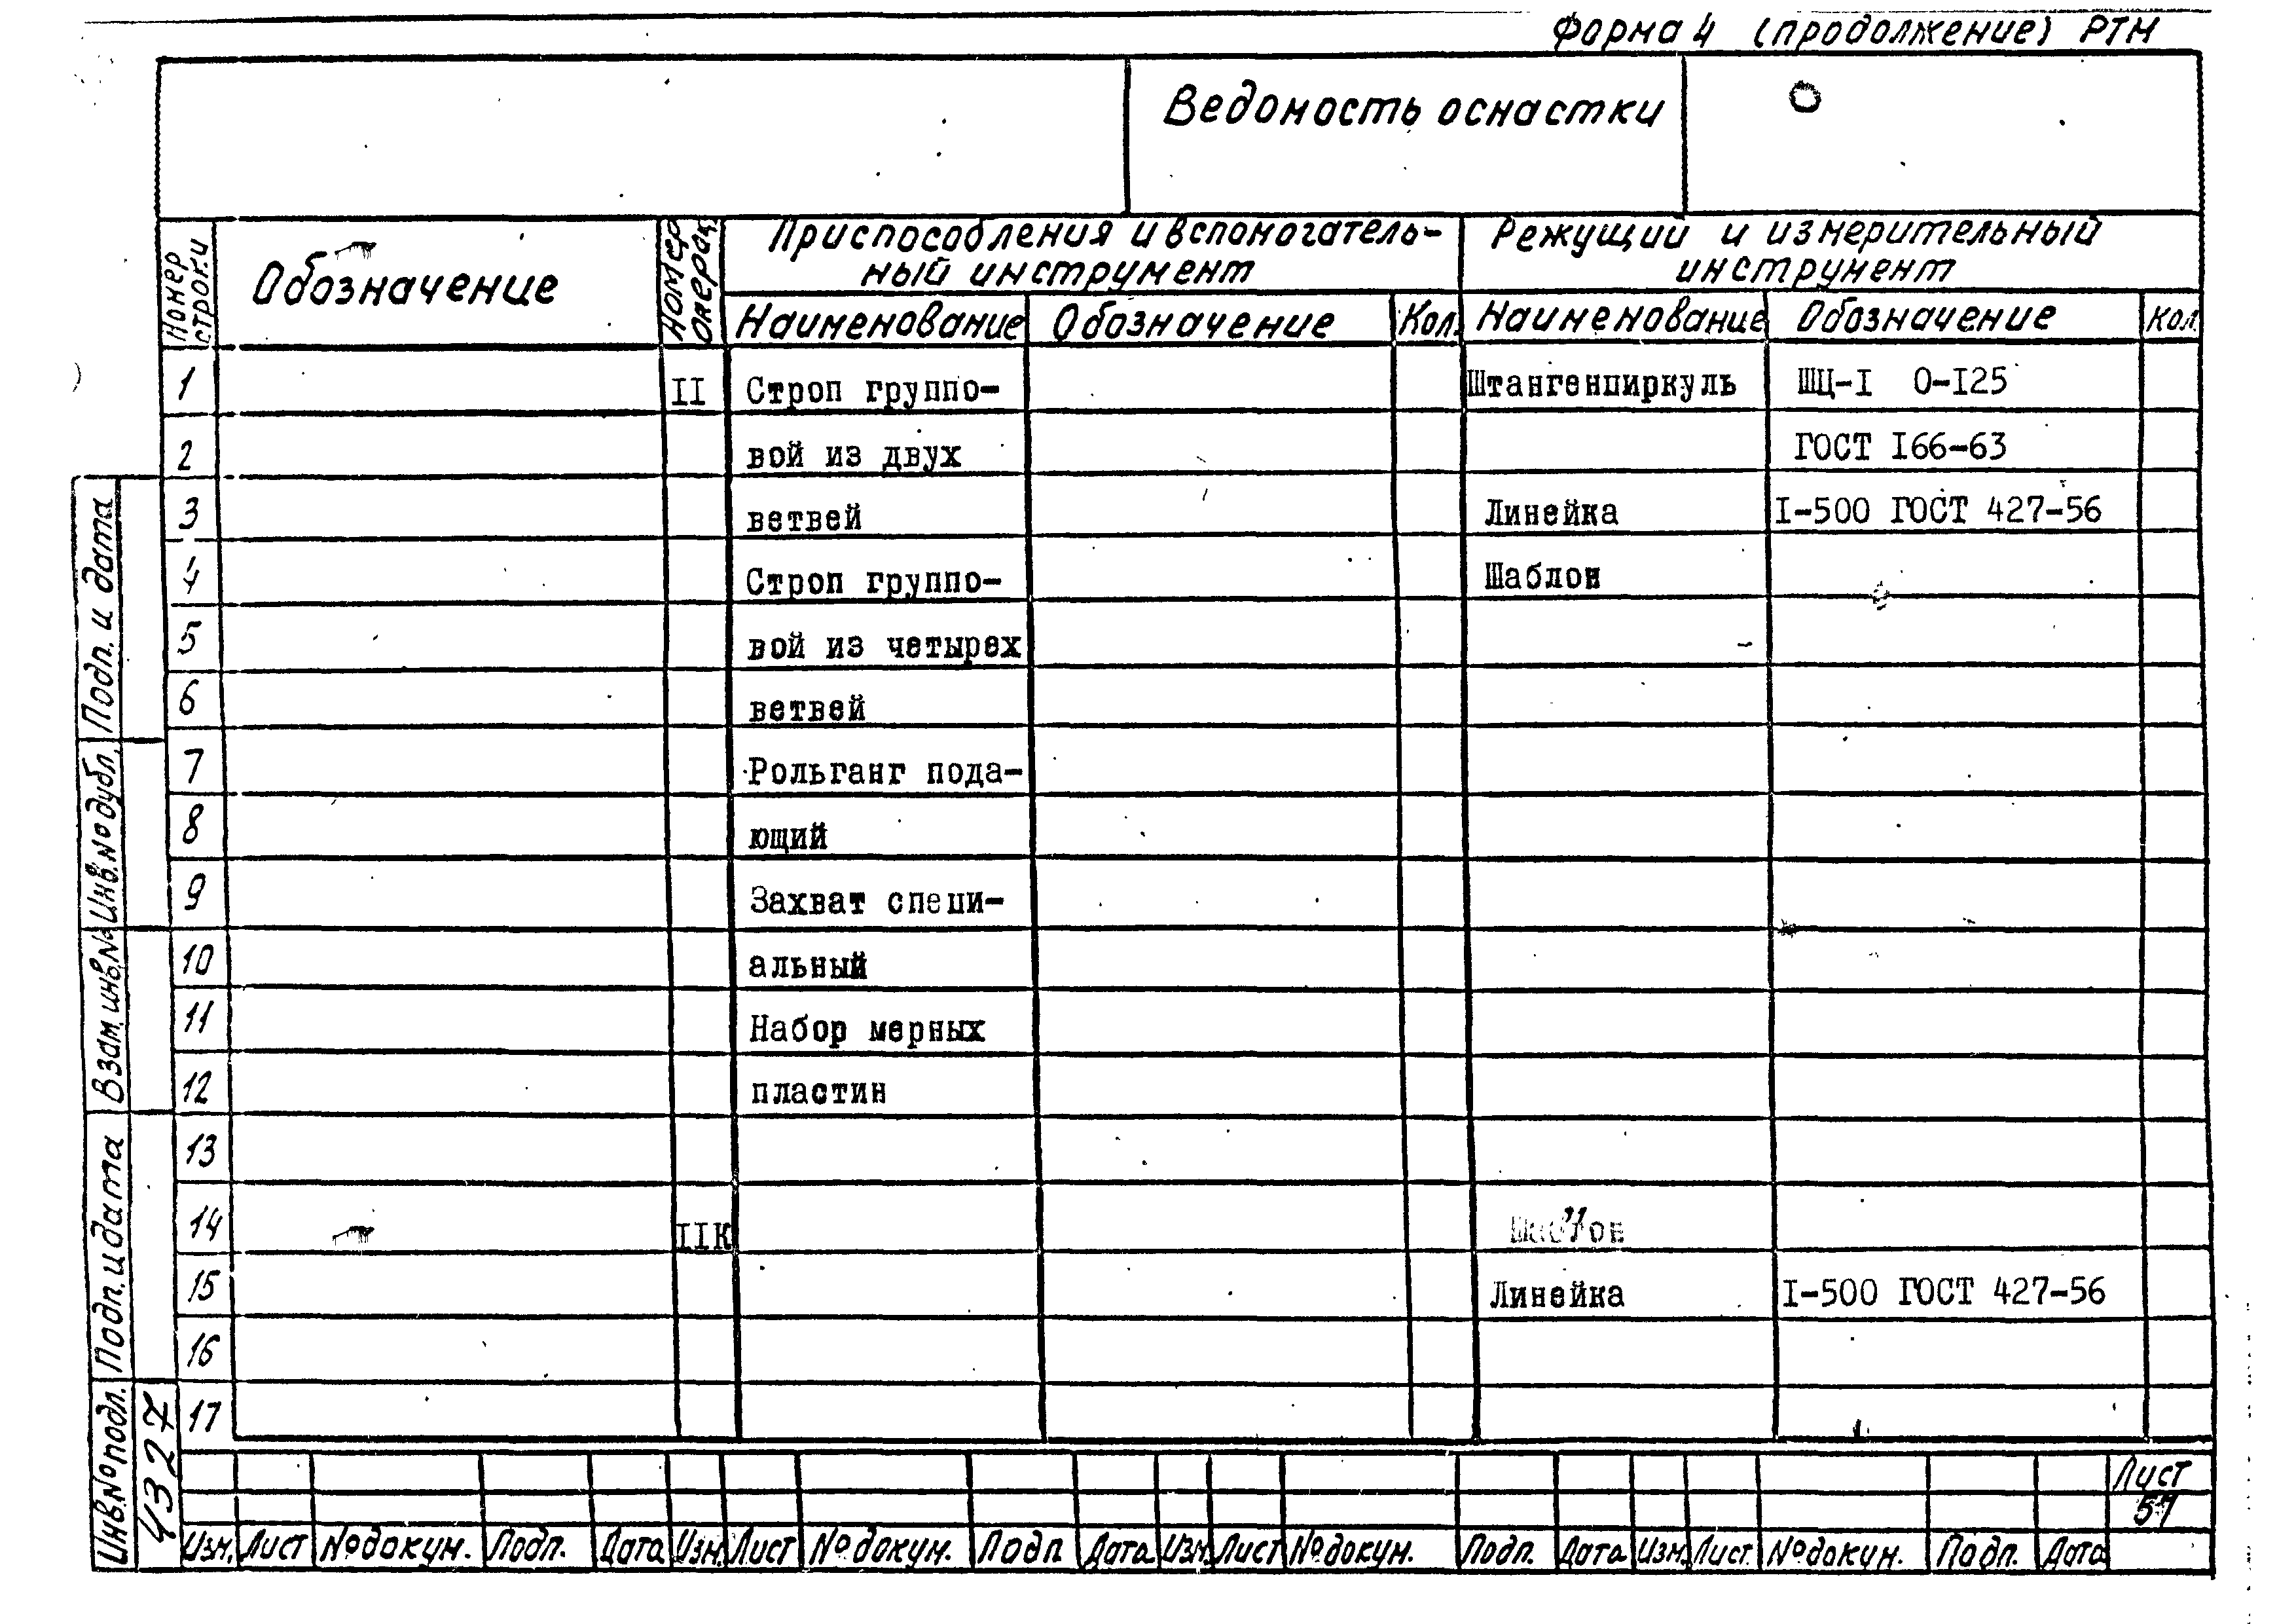 Форма 4 (продолжение) РТМ
Ведомость оснастки
Номер строки
Обозначение
Номер операц.
Приспособления и вспомогатель-
ный инструмент
Режущий и измерительный
инструмент
Наименование Обозначение Кол. Наименование Обозначение Кол.
1 II Строп группо- Штангенциркуль ШЦ-I 0-I25
2 вой из двух ГОСТ I66-63
3 ветвей Линейка I-500 ГОСТ 427-56
4 Строп группо- Шаблон
5 вой из четырех
6 ветвей
7 Рольганг пода-
8 ющий
9 Захват специ-
10 альный
11 Набор мерных
12 пластин
13
14 IIК Шаблон
15 Линейка I-500 ГОСТ 427-56
16
17
Подп. и дата
Инв.№ дубл.
Взам.инв.№
Подп. и дата
Инв.№ подл.
4327
Лист
57
Изм. Лист № докум. Подп. Дата Изм. Лист № докум. Подп Дата Изм. Лист № докум. Подп. Дата Изм. Лист № докум. Подп. Дата